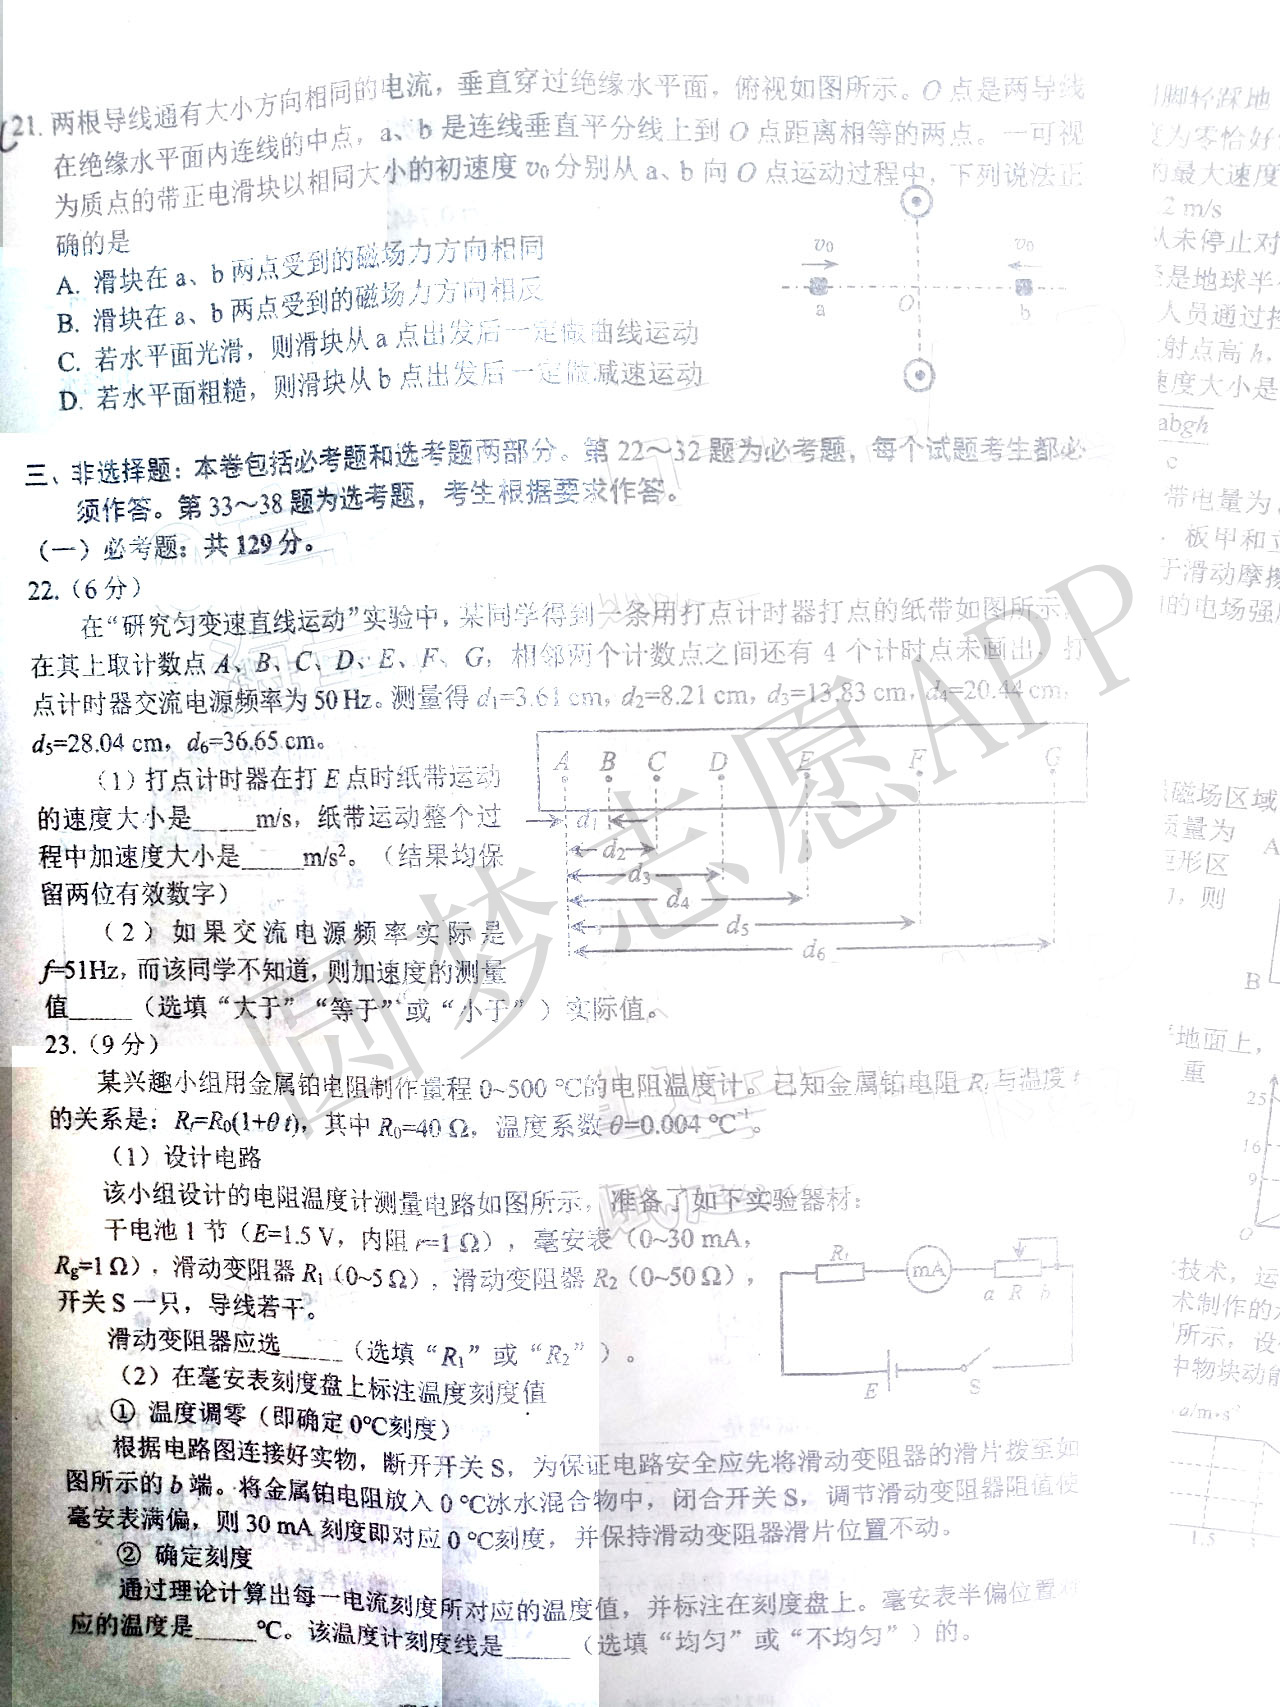 21. 两根导线通有大小方向相同的电流，垂直穿过绝缘水平面，俯视如图所示。O 点是两导线
在绝缘水平面内连线的中点，a、b 是连线垂直平分线上到 O 点距离相等的两点。一可视
为质点的带正电滑块以相同大小的初速度 v₀ 分别从 a、b 向 O 点运动过程中，下列说法正
确的是
A. 滑块在 a、b 两点受到的磁场力方向相同
B. 滑块在 a、b 两点受到的磁场力方向相反
C. 若水平面光滑，则滑块从 a 点出发后一定做曲线运动
D. 若水平面粗糙，则滑块从 b 点出发后一定做减速运动
v₀ v₀
a O b
三、非选择题：本卷包括必考题和选考题两部分。第 22～32 题为必考题，每个试题考生都必
须作答。第 33～38 题为选考题，考生根据要求作答。
（一）必考题：共 129 分。
22.（6 分）
在“研究匀变速直线运动”实验中，某同学得到一条用打点计时器打点的纸带如图所示，
在其上取计数点 A、B、C、D、E、F、G，相邻两个计数点之间还有 4 个计时点未画出，打
点计时器交流电源频率为 50 Hz。测量得 d₁=3.61 cm，d₂=8.21 cm，d₃=13.83 cm，d₄=20.44 cm，
d₅=28.04 cm，d₆=36.65 cm。
（1）打点计时器在打 E 点时纸带运动
的速度大小是_____m/s，纸带运动整个过
程中加速度大小是_____m/s²。（结果均保
留两位有效数字）
（2）如果交流电源频率实际是
f=51Hz，而该同学不知道，则加速度的测量
值_____（选填“大于”“等于”或“小于”）实际值。
A B C D E F G
d₁
d₂
d₃
d₄
d₅
d₆
23.（9 分）
某兴趣小组用金属铂电阻制作量程 0~500 ℃的电阻温度计。已知金属铂电阻 Rₜ 与温度 t
的关系是：Rₜ=R₀(1+θt)，其中 R₀=40 Ω，温度系数 θ=0.004 ℃⁻¹。
（1）设计电路
该小组设计的电阻温度计测量电路如图所示，准备了如下实验器材：
干电池 1 节（E=1.5 V，内阻 r=1 Ω），毫安表（0~30 mA，
Rg=1 Ω），滑动变阻器 R₁（0~5 Ω），滑动变阻器 R₂（0~50 Ω），
开关 S 一只，导线若干。
滑动变阻器应选_____（选填“R₁”或“R₂”）。
Rₜ mA a R b
E S
（2）在毫安表刻度盘上标注温度刻度值
① 温度调零（即确定 0℃刻度）
根据电路图连接好实物，断开开关 S，为保证电路安全应先将滑动变阻器的滑片拨至如
图所示的 b 端。将金属铂电阻放入 0 ℃冰水混合物中，闭合开关 S，调节滑动变阻器阻值使
毫安表满偏，则 30 mA 刻度即对应 0 ℃刻度，并保持滑动变阻器滑片位置不动。
② 确定刻度
通过理论计算出每一电流刻度所对应的温度值，并标注在刻度盘上。毫安表半偏位置对
应的温度是_____℃。该温度计刻度线是_____（选填“均匀”或“不均匀”）的。
圆梦志愿APP
脚轻踩地
为零恰好
的最大速度
2 m/s
从未停止对
是地球半
人员通过
射点高 h，
速度大小是
abgh
c
带电量为
板甲和
于滑动摩擦
的电场强
磁场区域
质量为
A
矩形区
，则
B
地面上，
重
25
16
9
O
技术，运
术制作的
所示，设
中物块动能
a/m·s
1.5